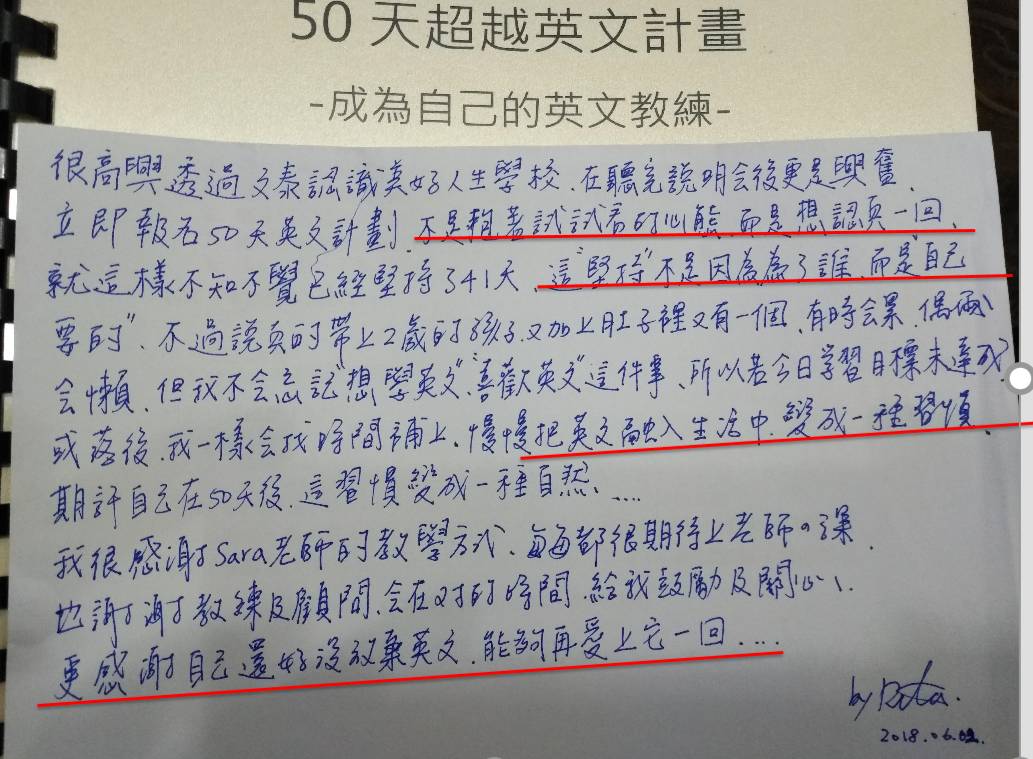 50 天超越英文計畫
-成為自己的英文教練-
很高興透過文泰認識美好人生學校、在聽完說明会後更是興奮、
立即報名50天英文計劃、不是抱著試試看的心態、而是想認真一回、
就這樣不知不覺已經堅持了41天、這"堅持"不是因為為了誰、而是"自己
要的"、不過說真的帶上2歲的孩子又加上肚子裡又有一個、有時会累、偶爾
会懶、但我不会忘記"想學英文"、"喜歡英文"這件事、所以若今日学習目標未達成
或落後、我一樣会找時間補上、慢慢把英文融入生活中、變成一種習慣、
期許自己在50天後、這習慣變成一種自然、....
我很感謝Sara老師的教學方式、每每都很期待上老師の課、
也謝謝教練及顧問、会在对的時間、給我鼓勵及關心、
更感謝自己還好沒放棄英文、能夠再愛上它一回....
by Rita.
2018.06.02.